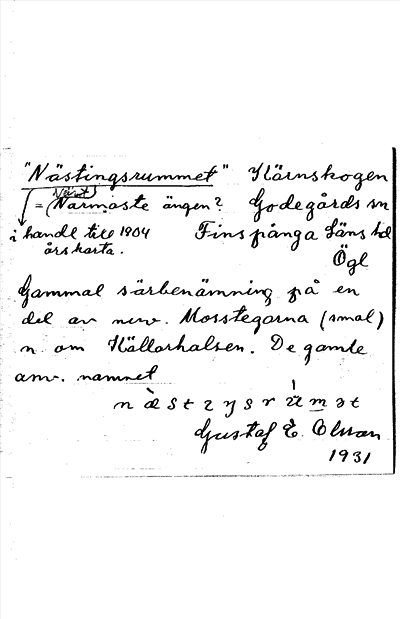 "Nästingsrummet" Kärnskogen
= (Närmaste ängen? Godegårds sn
i handl till 1904 Finspånga läns hd
års karta.
Ögl
Gammal särbenämning på en
del av nuv. Mosstegarna (smal)
n. om Källarhalsen. De gamle
anv. namnet
Gustaf E. Olsson
1931